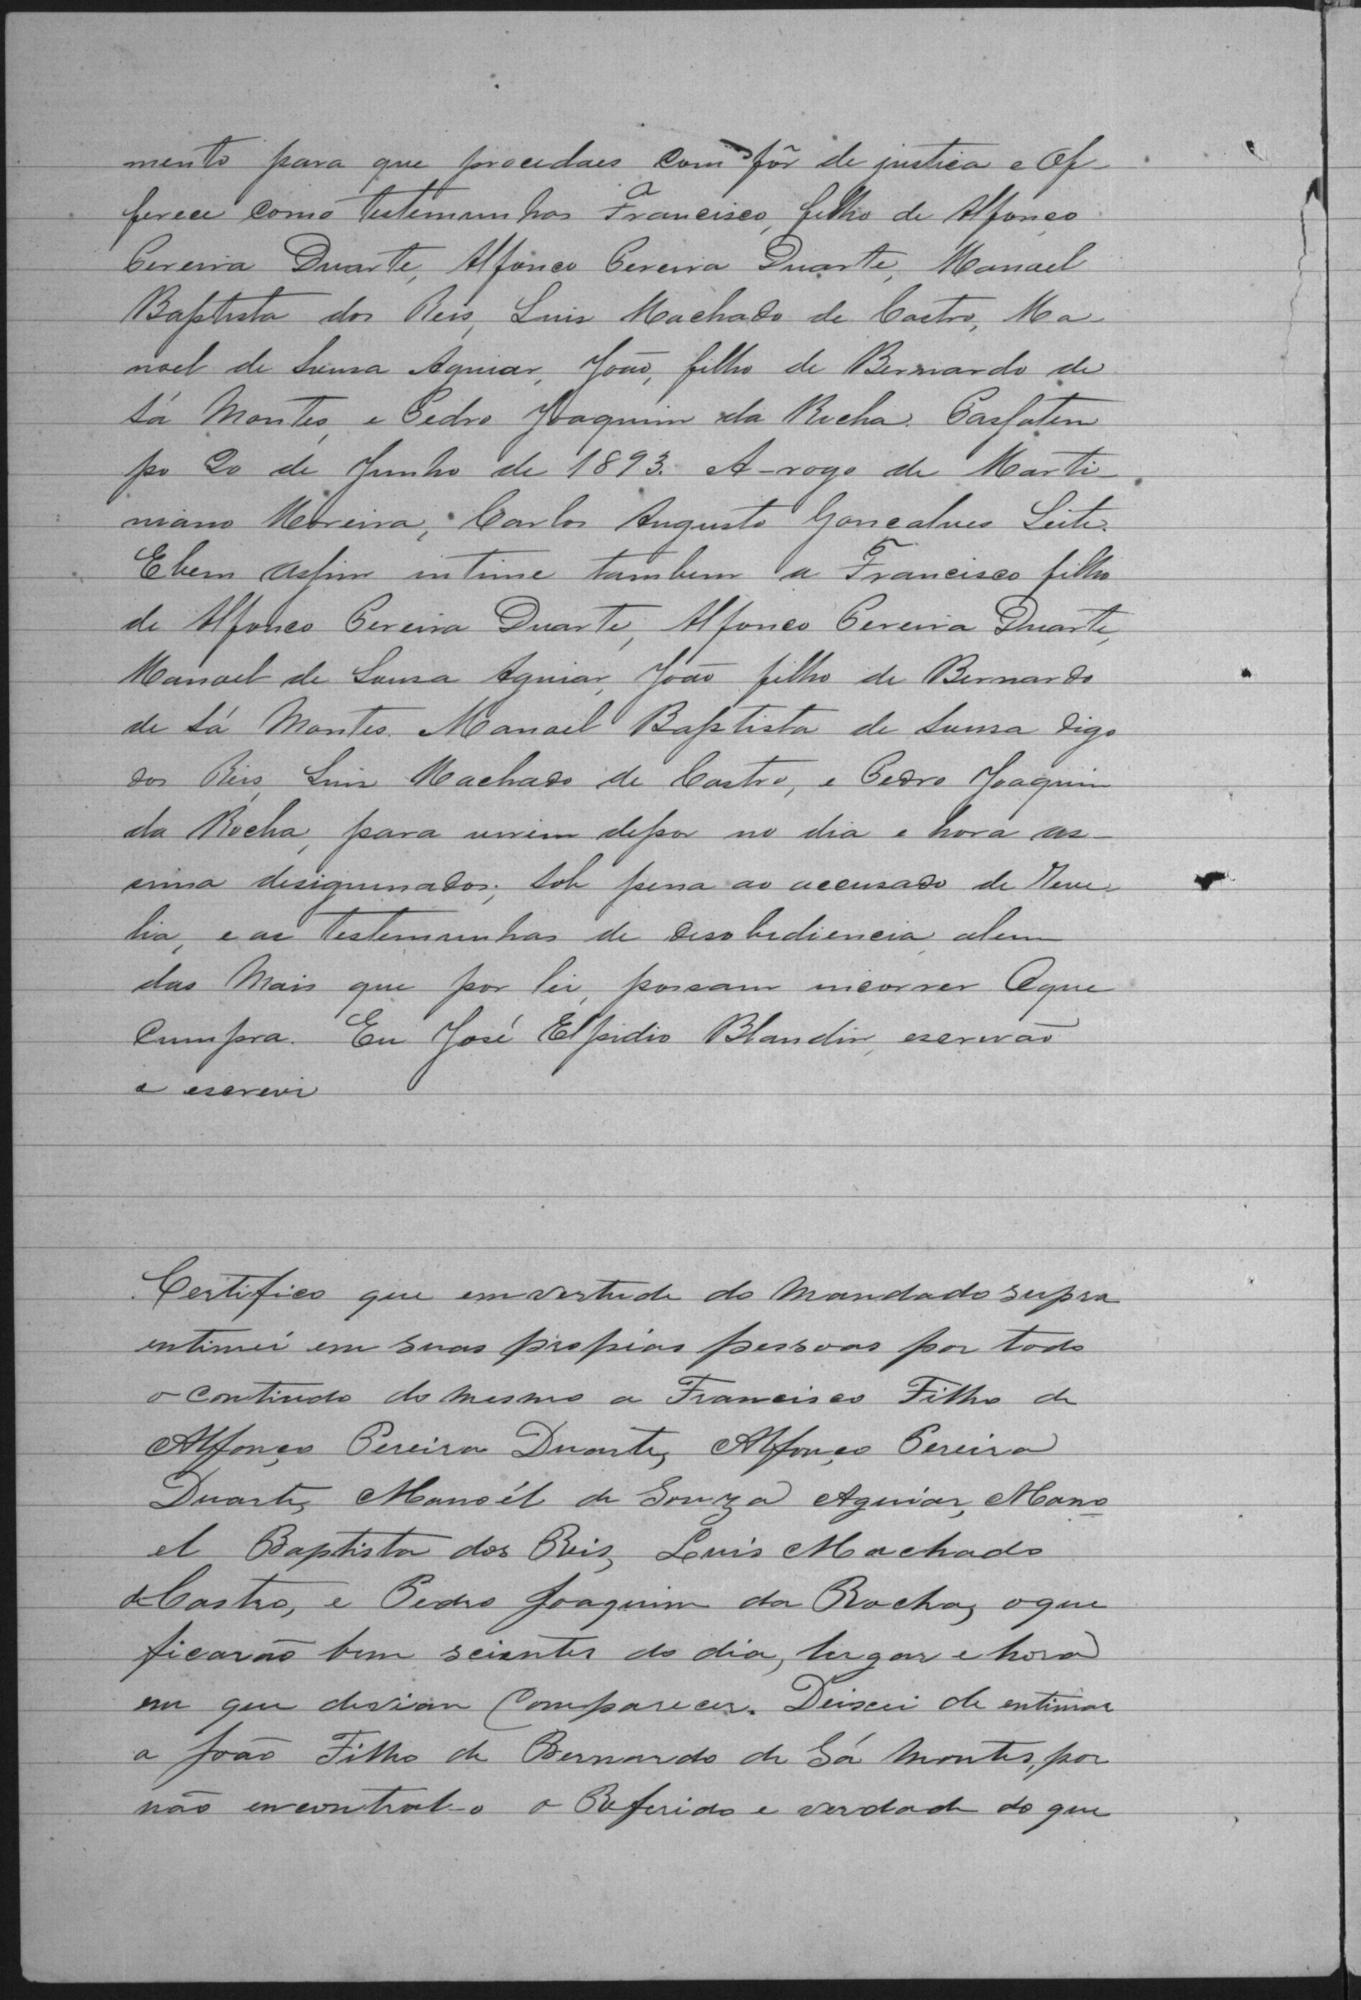 mento para que procedaes como fôr de justica e Of-
ferece como testemunhas Francisco, filho de Alfonço
Pereira Duarte, Alfonco Pereira Duarte, Manoel
Baptista dos Reis, Luis Machado de Castro, Ma-
noel de Sousa Aguiar, João, filho de Bernardo de
Sá Montes, e Pedro Joaquim da Rocha. Passatem
po 20 de Junho de 1893. A-rogo de Marti-
niano Moreira, Carlos Augusto Goncalves Leite.
Ebem assim intime tambem a Francisco filho
de Alfonco Pereira Duarte, Alfonco Pereira Duarte,
Manoel de Sousa Aguiar, João filho de Bernardo
de Sá Montes. Manoel Baptista de Sousa digo
dos Reis, Luis Machado de Castro, e Pedro Joaquim
da Rocha, para virem depor no dia e hora as-
sima designnados; sob pena ao accusado de Reve-
lia, e as testemunhas de desobediencia, alem
das mais que por lei, possam incorrer Oque
Cumpra. Eu José Elpidio Blandin, escrivão
o escrevi
Certifico que emvertude do mandado supra
entimei em suas propias pessoas por todo
o contiudo do mesmo a Francisco Filho de
Alfonço Pereira Duarte, Alfonço Pereira
Duarte, Manoél de Souza Aguiar, Mano
el Baptista dos Reis, Luis Machado
de Castro, e Pedro Joaquim da Rocha, oque
ficarão bem scientes do dia, lugar e hora
em que devian Comparecer. Deixei de entimar
a João Filho de Bernardo de Sá Montes, por
não encontral-o o Referido e verdade do que